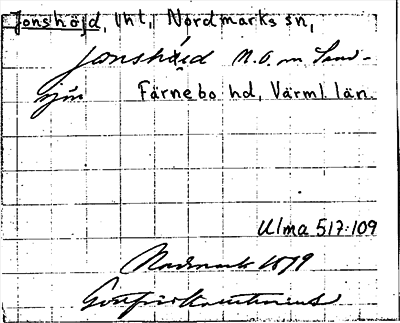 Jonshöjd, Uht., Nordmarks sn,
Jonshöid N.O. om Sand-
sjön Färnebo hd, Värml. län.
Ulma 517:109
Nordmark 1879